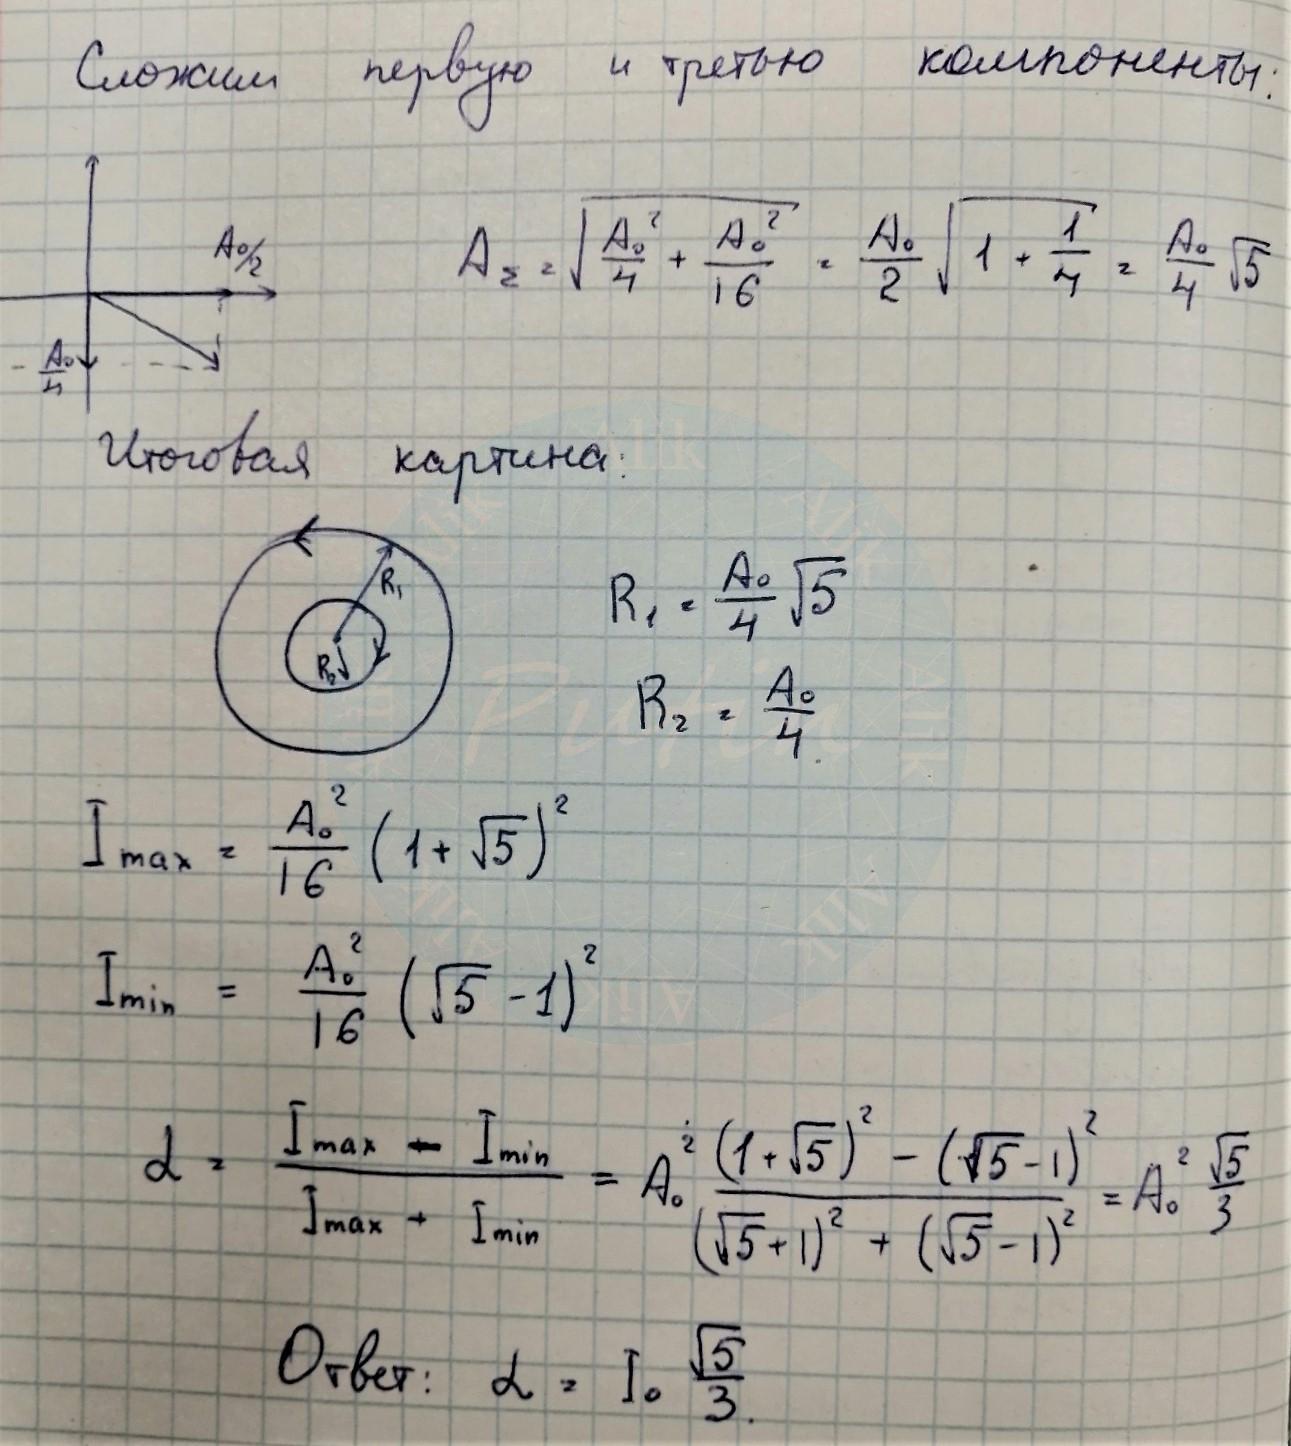 Сложим первую и третью компоненты:
A₀/2
A₀/4
A_Σ = √(A₀²/4 + A₀²/16) = A₀/2 √(1 + 1/4) = A₀/4 √5
Итоговая картина:
R₁
R₂
R₁ = A₀/4 √5
R₂ = A₀/4.
I_max = A₀²/16 (1 + √5)²
I_min = A₀²/16 (√5 - 1)²
α = (I_max - I_min)/(I_max + I_min) = A₀² ((1+√5)² - (√5-1)²)/((√5+1)² + (√5-1)²) = A₀² √5/3
Ответ: α = I₀ √5/3.
Putin
Alik
Alik
Alik
Alik
Alik
Alik
Alik